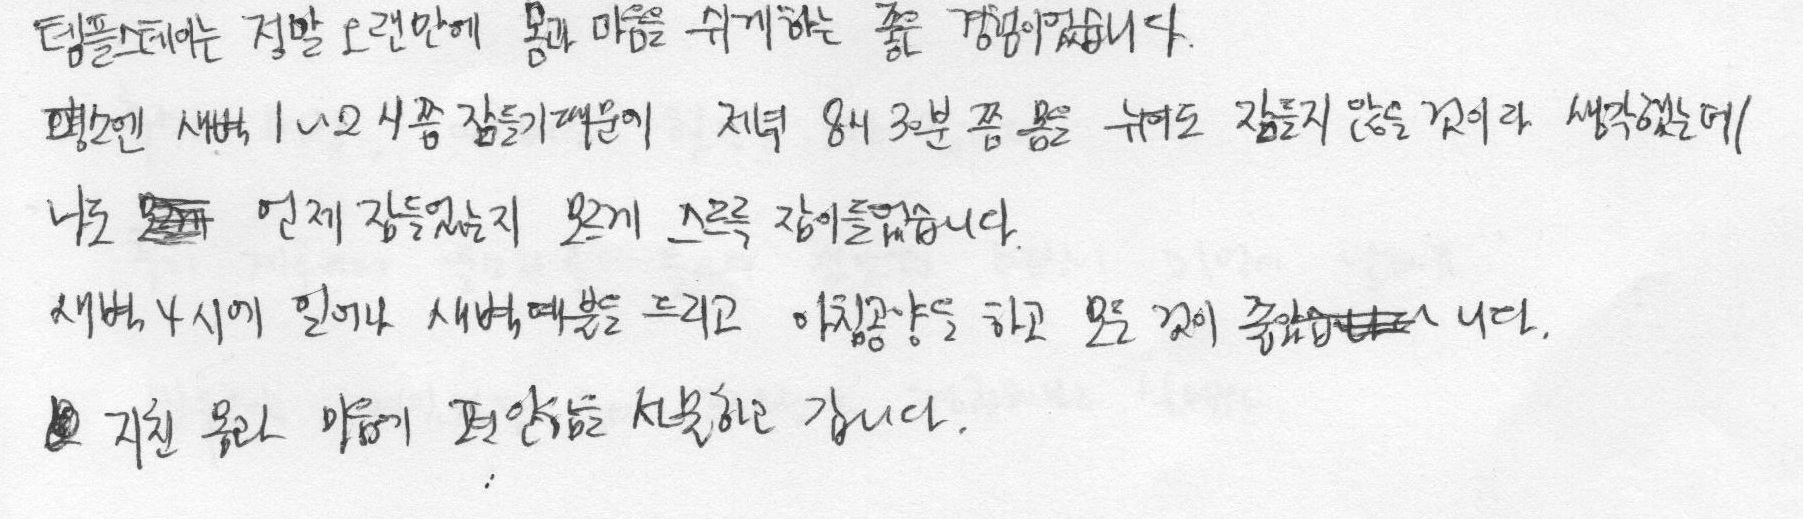 템플스테이는 정말 오랜만에 몸과 마음을 쉬게하는 좋은 경험이었습니다.
평소엔 새벽 1~2시쯤 잠들기때문에 저녁 8시 30분쯤 몸을 뉘여도 잠들지 않을 것이라 생각했는데
나도 언제 잠들었는지 모르게 스르륵 잠이들었습니다.
새벽 4시에 일어나 새벽예불을 드리고 아침공양을 하고 모든 것이 좋았습니다.
지친 몸과 마음에 편안함을 선물하고 갑니다.